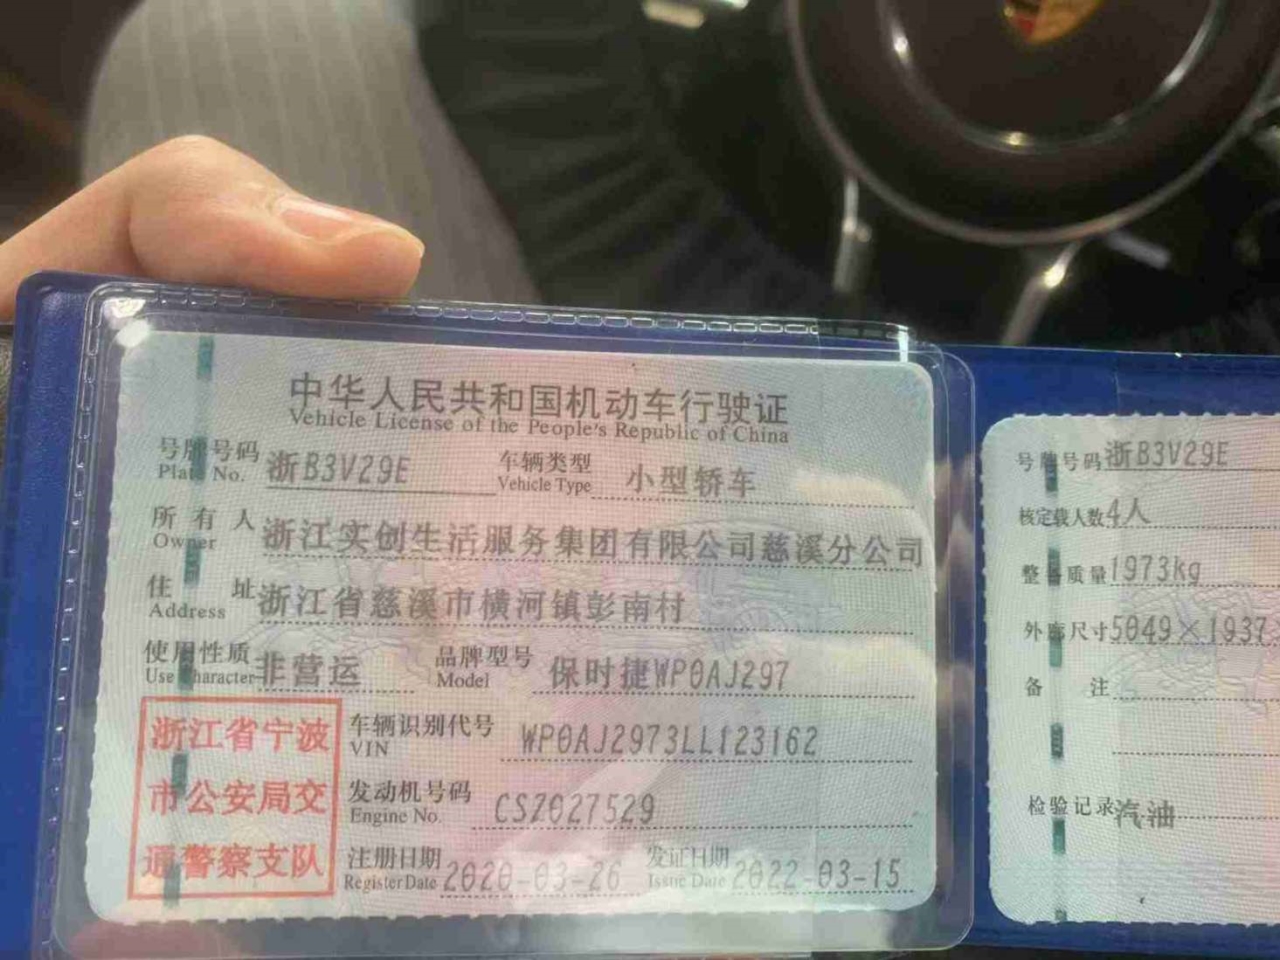 中华人民共和国机动车行驶证
Vehicle License of the People's Republic of China
号牌号码 浙B3V29E 车辆类型 小型轿车
Plate No. Vehicle Type
所有人 浙江实创生活服务集团有限公司慈溪分公司
Owner
住址 浙江省慈溪市横河镇彭南村
Address
使用性质 非营运 品牌型号 保时捷WP0AJ297
Use Character Model
浙江省宁波
市公安局交
通警察支队
车辆识别代号 WP0AJ2973LL123162
VIN
发动机号码 CSZ027529
Engine No.
注册日期 2020-03-26 发证日期 2022-03-15
Register Date Issue Date
号牌号码 浙B3V29E
核定载人数 4人
整备质量 1973kg
外廓尺寸 5049×1937
备注
检验记录 汽油